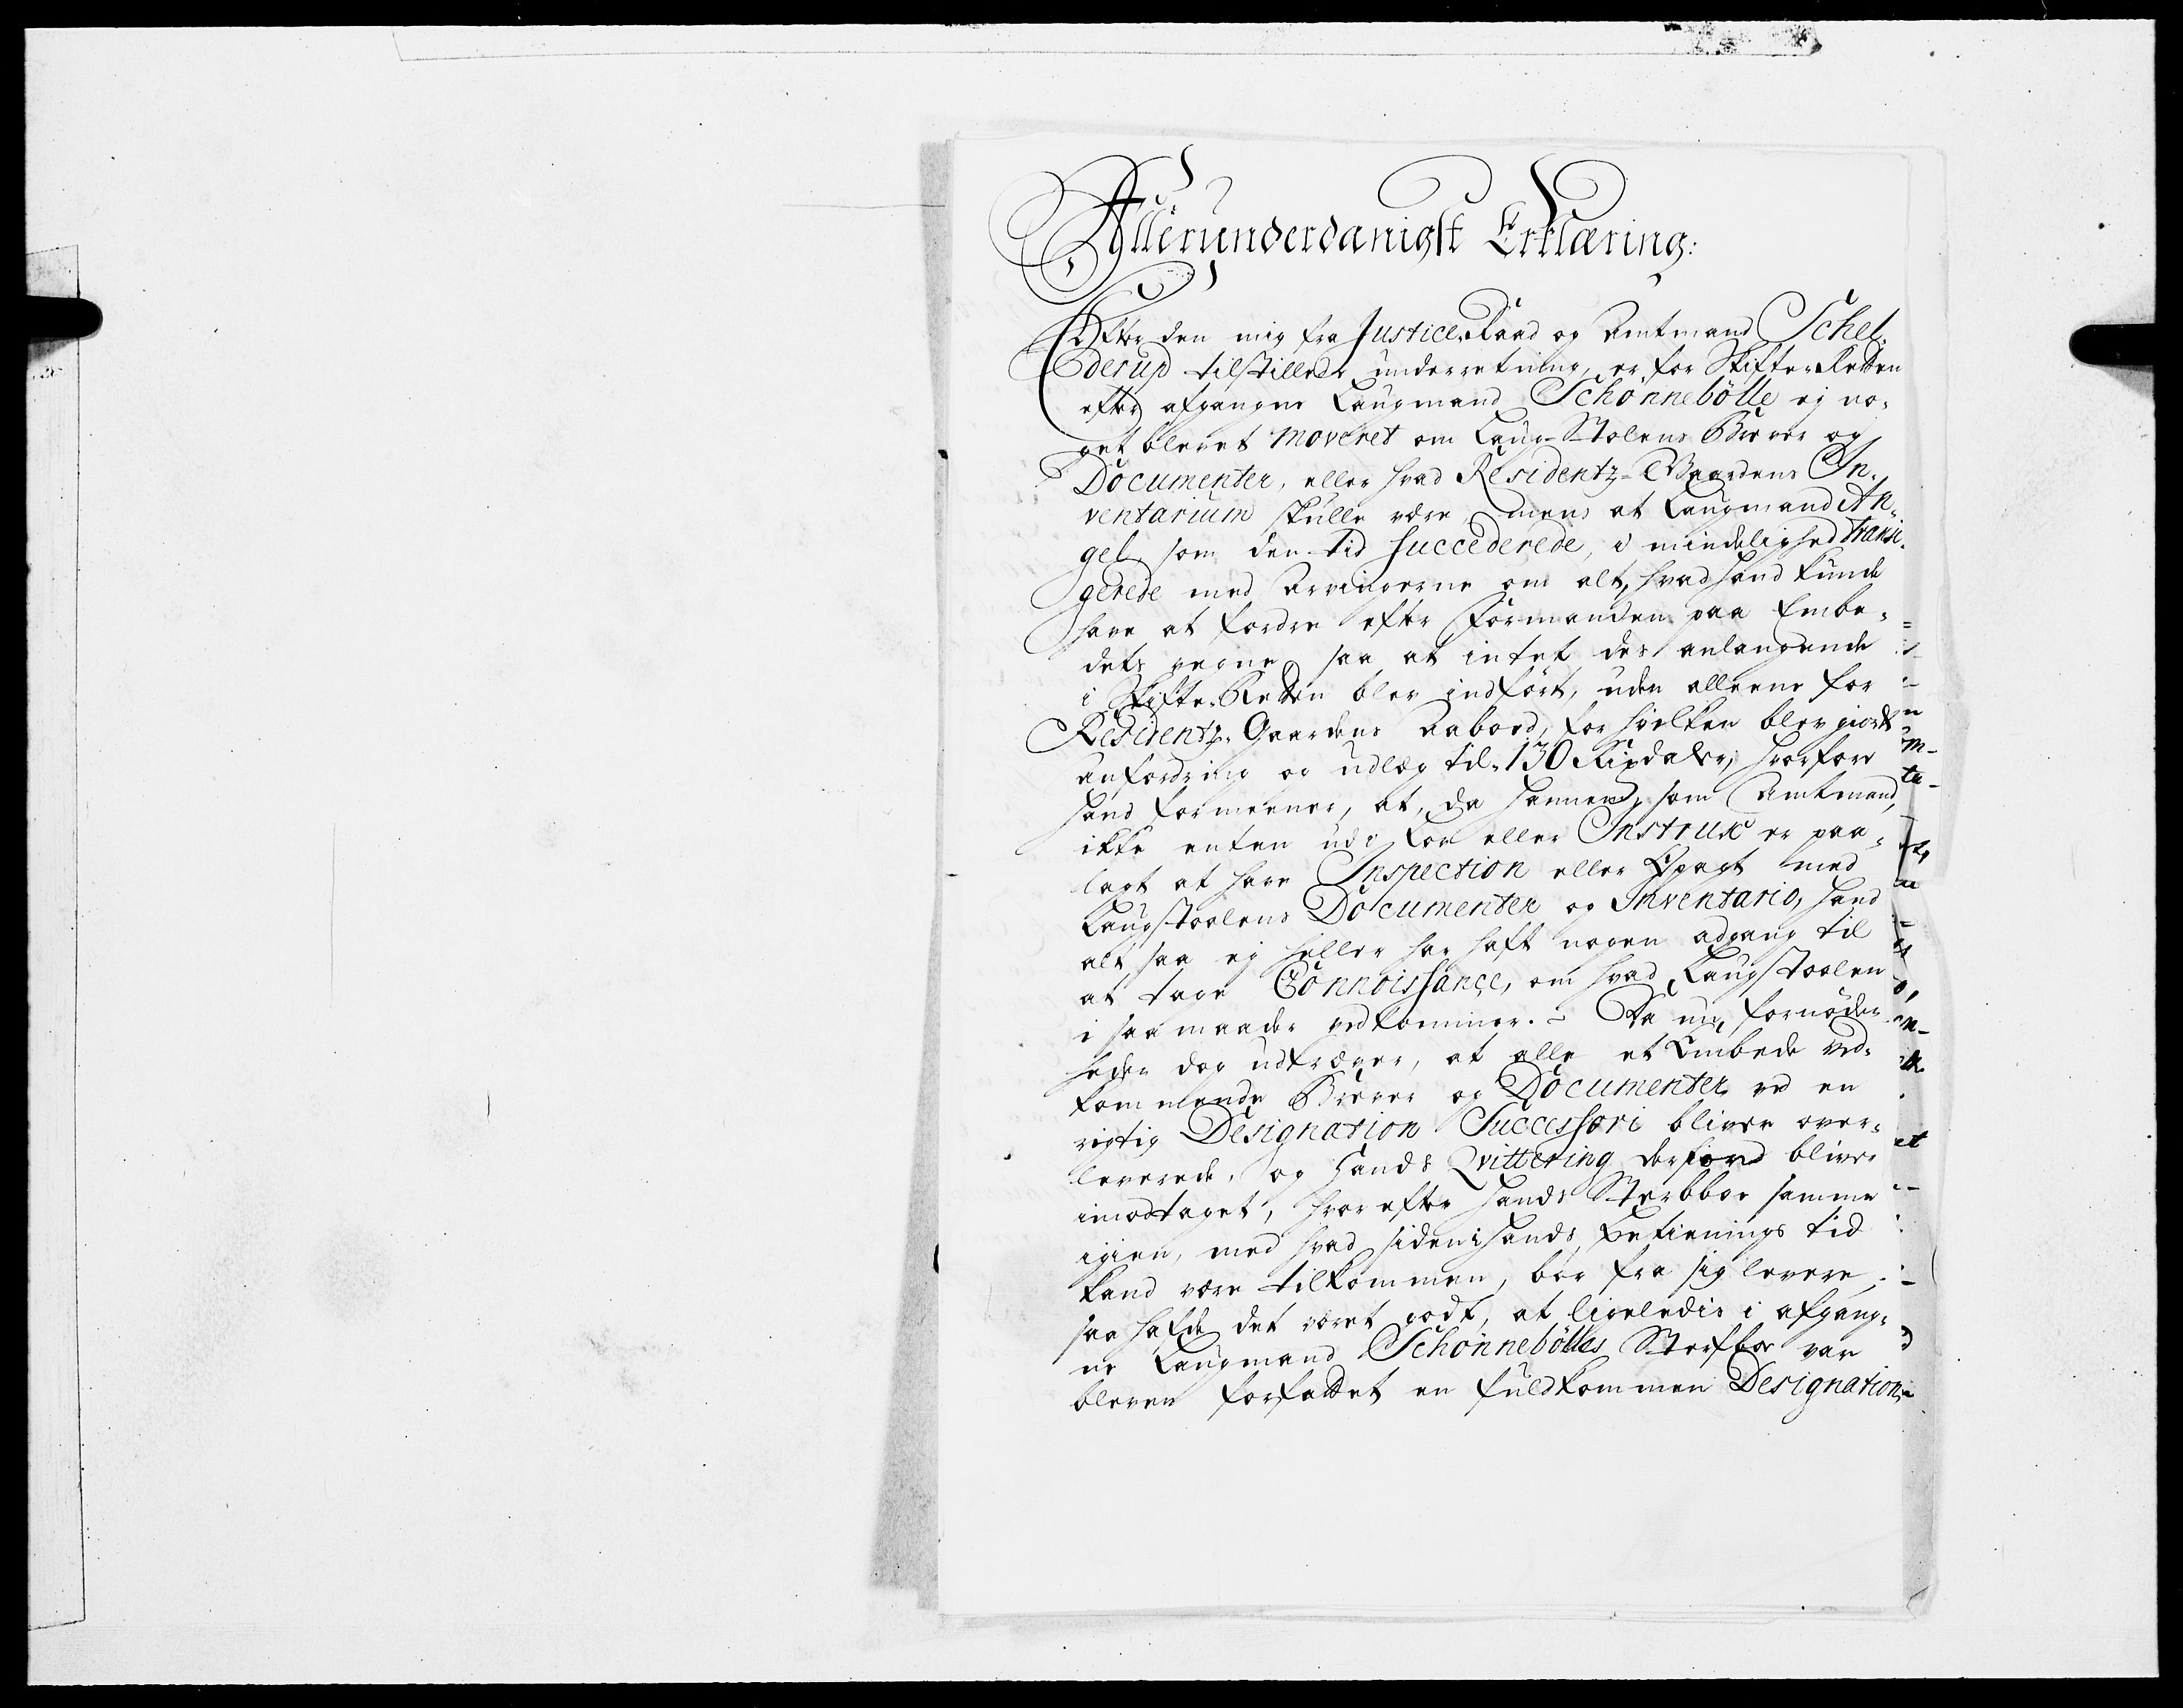 Allerunderdanigst Erklæring:
Efter den mig fra Justice-Raad og Amtmand Schel-
derup tilstillede underretning, er for Skifte-Retten
efter afgangne Laugmand Schönnebölle ej no-
get blevet moveret om Laug-Stolens Brever og
Documenter, eller hvad Residentz-Gaardens In-
ventarium skulle være, mens at Laugmand An-
gel, som den tid succederede, i mindelighed transi-
gerede med Arvingerne om alt, hvad hand kunde
have at fordre efter Formanden paa Embe-
dets vegne, saa at intet des anlangende
i Skifte-Retten blev indført, uden alleene for
Residentz-Gaardens Aaboed, for hvilken blev giordt
anfordring og udlæg til 130 Rixdaler, hvorfore
hand formeener, at, da hannem, som Amtmand,
ikke enten udi Lov eller Instrux er paa-
lagt at have Inspection eller Opagt med
Laugstoelens Documenter og Inventario, hand
alt saa ej heller har haft nogen adgang til
at tage Connoissance, om hvad Laugstoelen
i saa maader vedkommer. - Da nu fornøden
heden dog udkræver, at alle et Embede ved-
kommende Brever og Documenter ved en
rigtig Designation Successori bliver over-
leverede, og hands Qvittering derfore bliver
imodtaget, hvor efter hands Sterbboe samme
igien, med hvad siden i hands betienings tid
kand være tilkommen, bør fra sig levere,
saa hafde det været godt, at ligeledis i afgang-
ne Laugmand Schönnebölles Sterfboe var
bleven forfattet en fuldkommen Designation